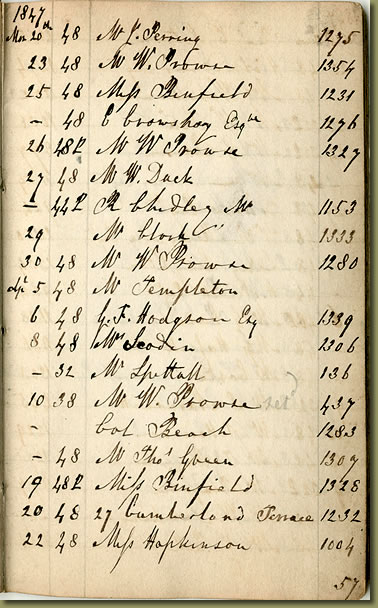 1847
Mar 20th 48 Mr J. Perring 1275
23 48 Mr W. Prowse 1354
25 48 Miss Binfield 1231
– 48 E Esqre 1276
26 48P Mr W Prowse 1327
27 48 Mr W. Duck
– 44P R Chidley Mr 1153
29 Mr Clock 1333
30 48 Mr W Prowse 1280
Ap 5 48 Mr Templeton
6 48 G. F. Hodgson Esq 1339
8 48 1306
– 32 Mr Spettall 136
10 38 Mr W. Prowse set 437
– Col Beach 1283
– 48 Mr Thos Green 1307
19 48P Miss Binfield 1328
20 48 27 Cumberland Terrace 1232
22 48 Miss Hopkinson 1004
57